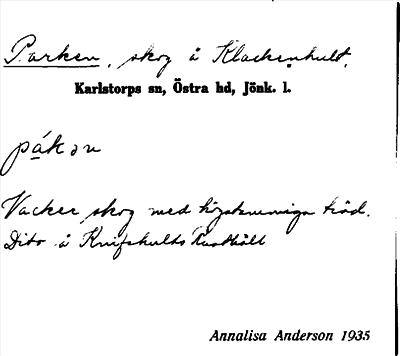 Parken, skog å Klackenhult.
Karlstorps sn, Östra hd, Jönk. l.
pák ən
Vacker skog med högstammiga träd.
Dito å Knifshults
Annalisa Anderson 1935